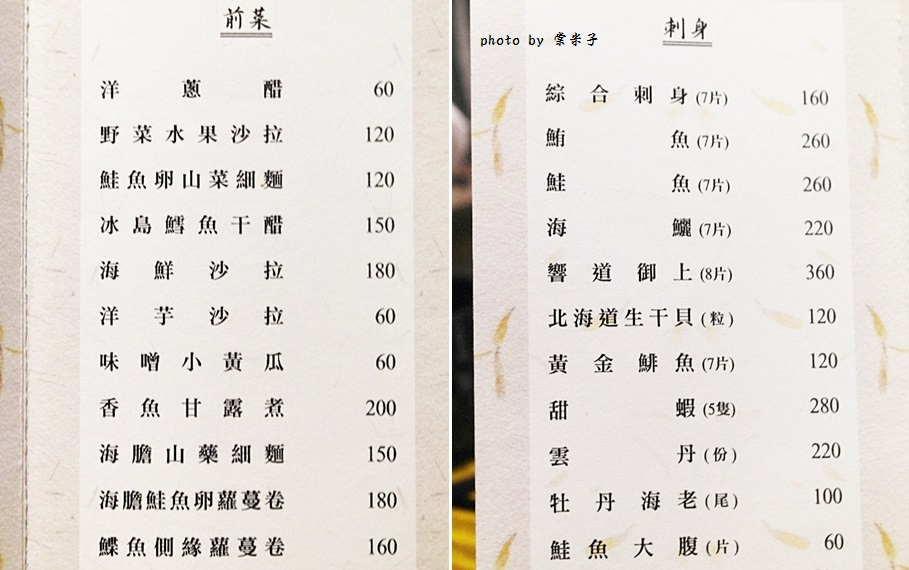 前菜
洋蔥醋 60
野菜水果沙拉 120
鮭魚卵山菜細麵 120
冰島鱈魚干醋 150
海鮮沙拉 180
洋芋沙拉 60
味噌小黃瓜 60
香魚甘露煮 200
海膽山藥細麵 150
海膽鮭魚卵蘿蔓卷 180
鰈魚側緣蘿蔓卷 160
photo by 棠米子
刺身
綜合刺身(7片) 160
鮪魚(7片) 260
鮭魚(7片) 260
海鱺(7片) 220
響道御上(8片) 360
北海道生干貝(粒) 120
黃金鯡魚(7片) 120
甜蝦(5隻) 280
雲丹(份) 220
牡丹海老(尾) 100
鮭魚大腹(片) 60